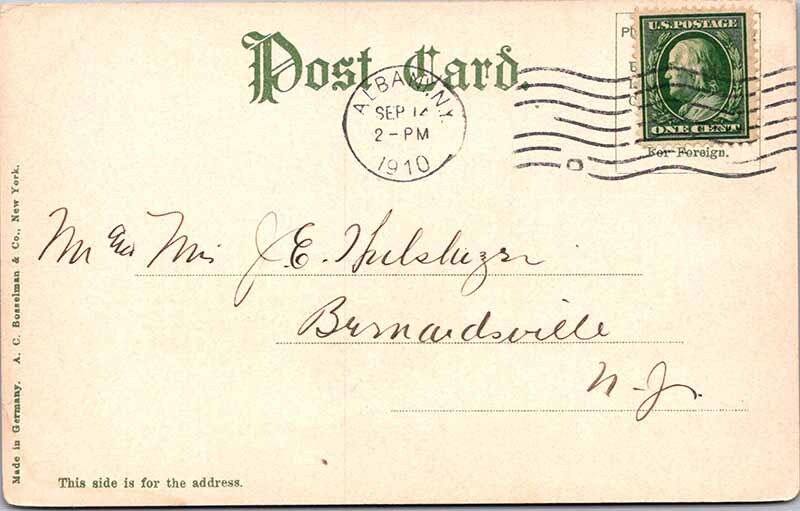 Post Card.
U.S. POSTAGE
ONE CENT
For Foreign.
ALBANY, N.Y.
SEP 12
2-PM
1910
Mr and Mrs J. E. Hulshizer
Bernardsville
N. J.
This side is for the address.
Made in Germany. A. C. Bosselman & Co., New York.